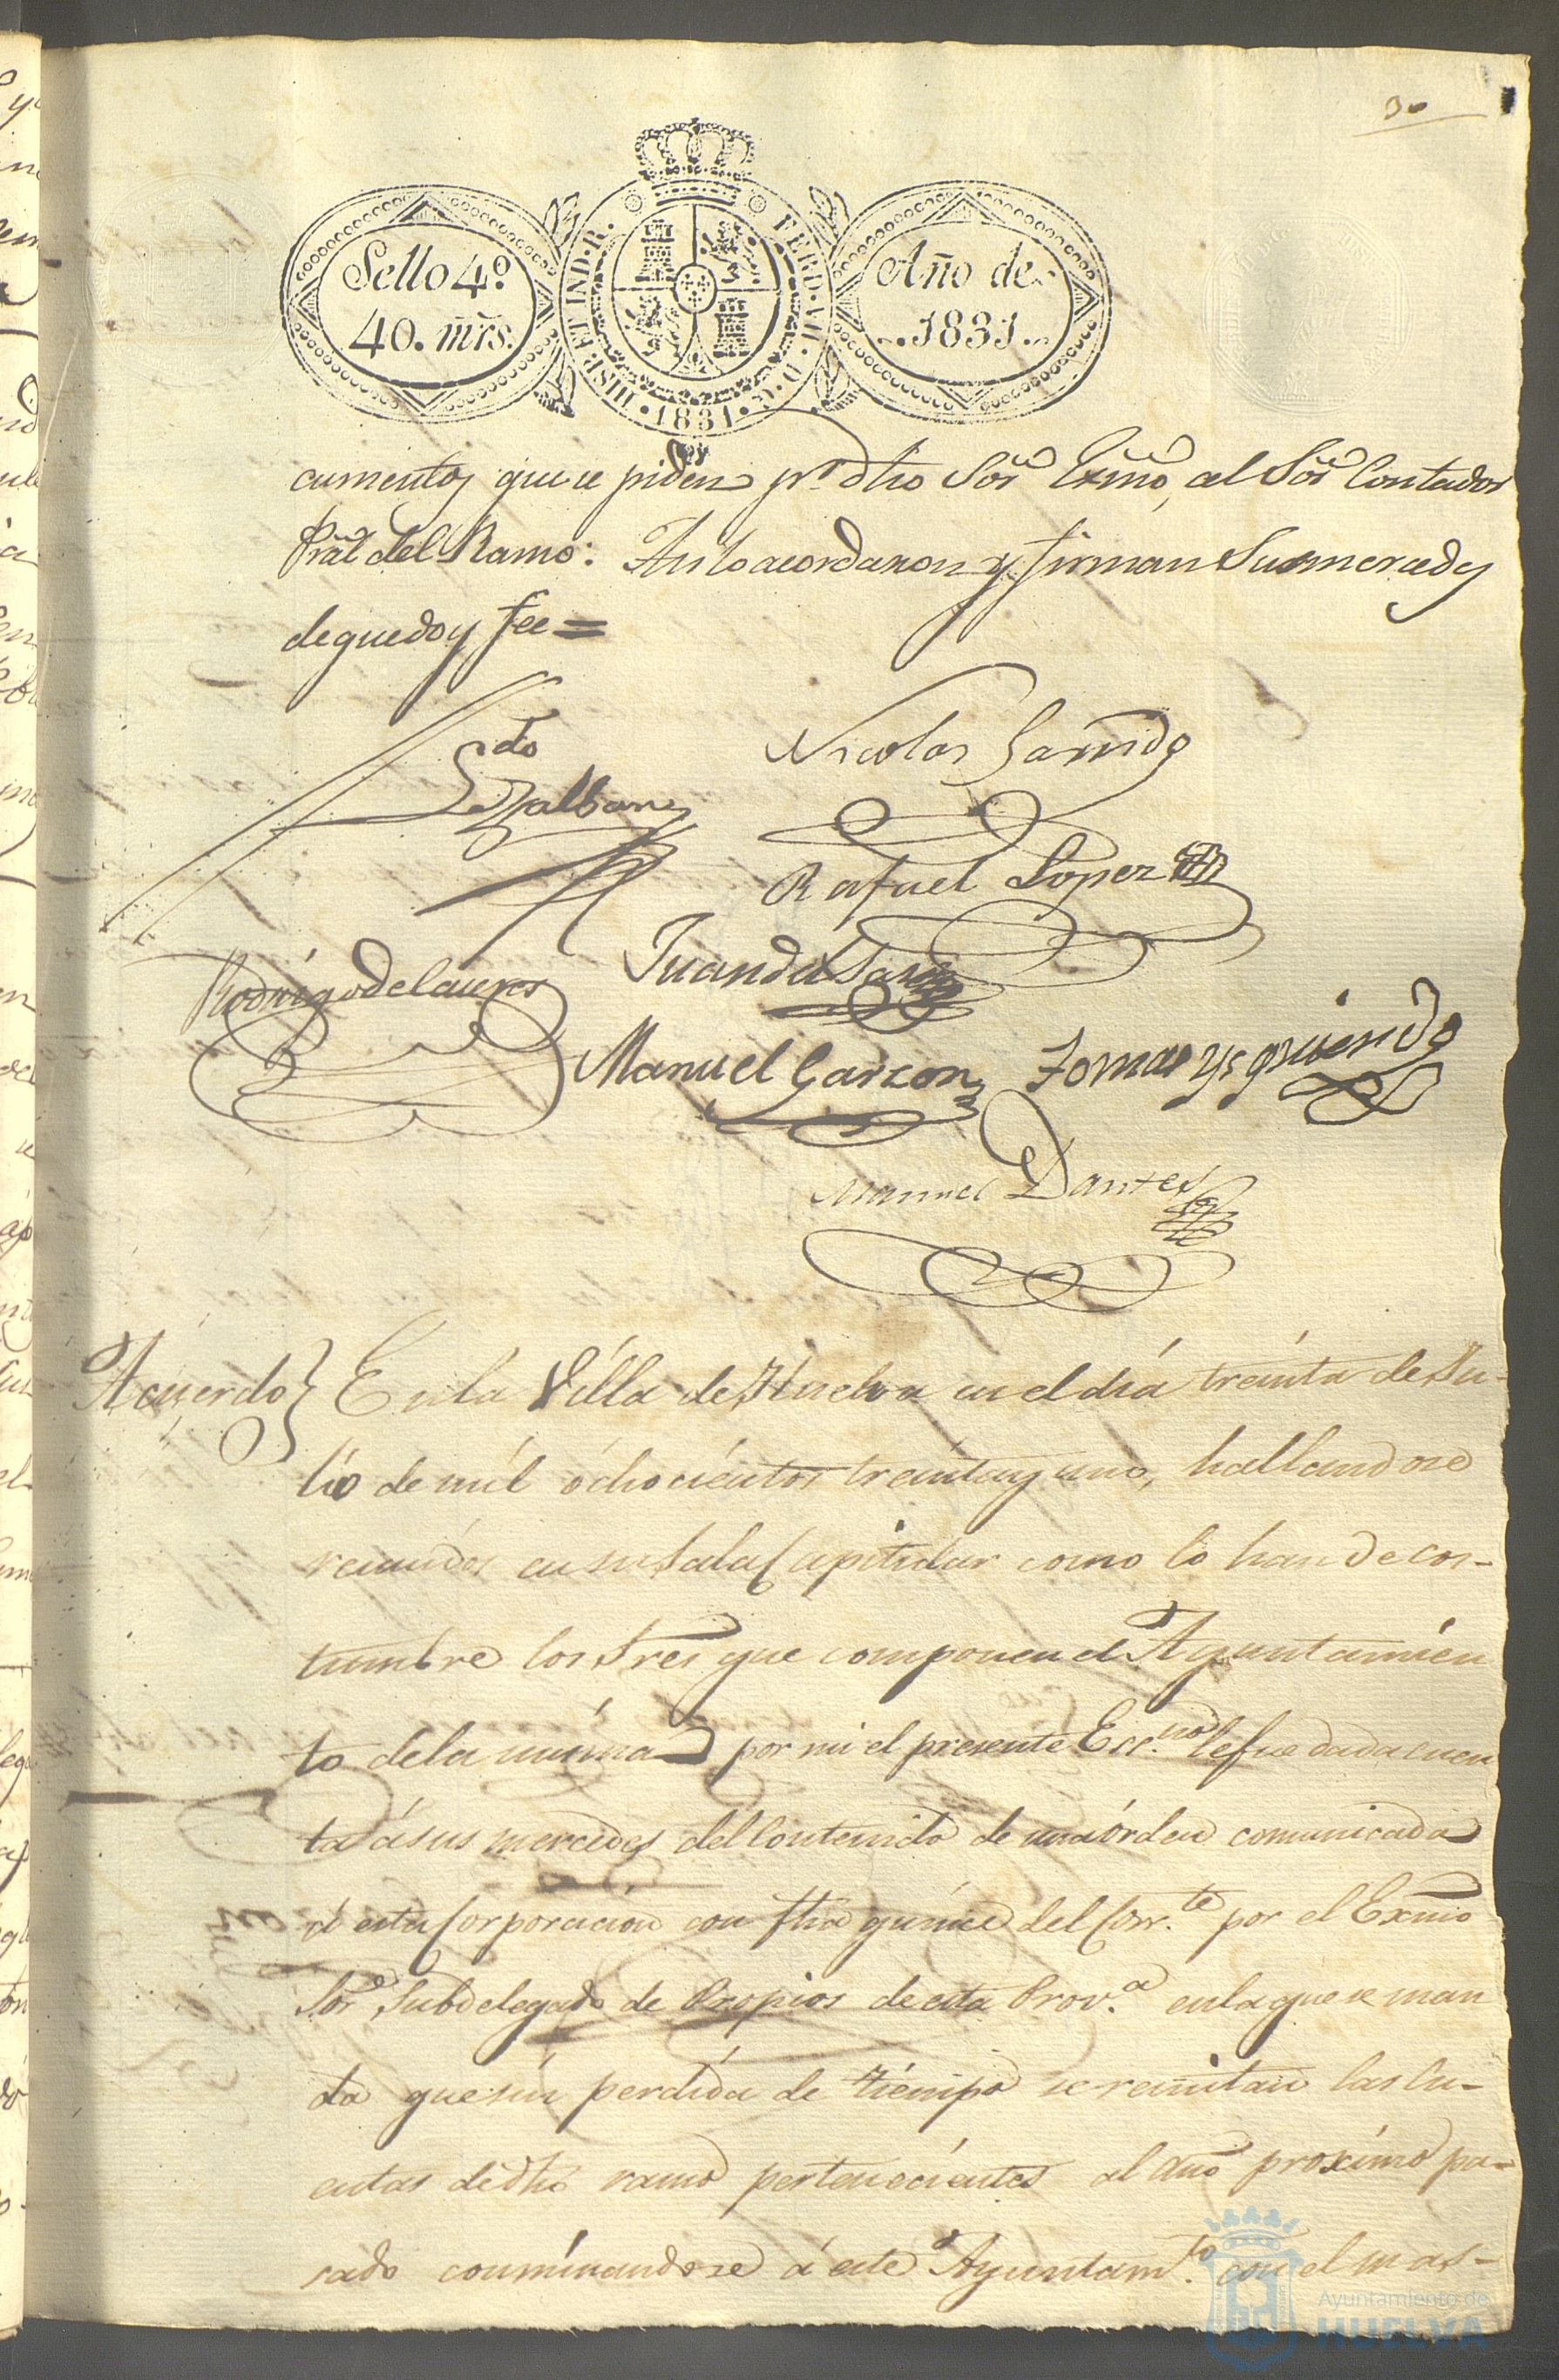 30
Sello 4º
40. mrs.
HISP. ET IND. R. FERD. VII. D. G. 1831.
Año de
1831
cumentos que se piden pr. dho Sor. Exmo, al Sor. Contador
Pral. del Ramo: Asi lo acordaron y firman Sus mercedes
de que doy fee =
Ldo
Nicolas Garrido
Rafael Lopez
Juan de
Manuel Garzon
Tomas ysquierdo
Manuel Dantes
Acuerdo
En la Villa de Huelva en el dia treinta de Ju-
lio de mil ochocientos treinta y uno, hallandose
reunidos en su Sala Capitular como lo han de cos-
tumbre los Sres que componen el Ayuntamien
to de la misma por mi el presente Essno. le fue dada cuen
ta á sus mercedes del contenido de una órden comunicada
á esta Corporacion con fha quince del Corrte. por el Exmo
Sor. Subdelegado de Propios de esta Prov.a en la que se man
da que sin perdida de tiempo se remitan las Cu-
entas de dho ramo pertenecientes al año proximo pa-
sado conminandose á este Ayuntamto. con el mas-
Ayuntamiento de
HUELVA